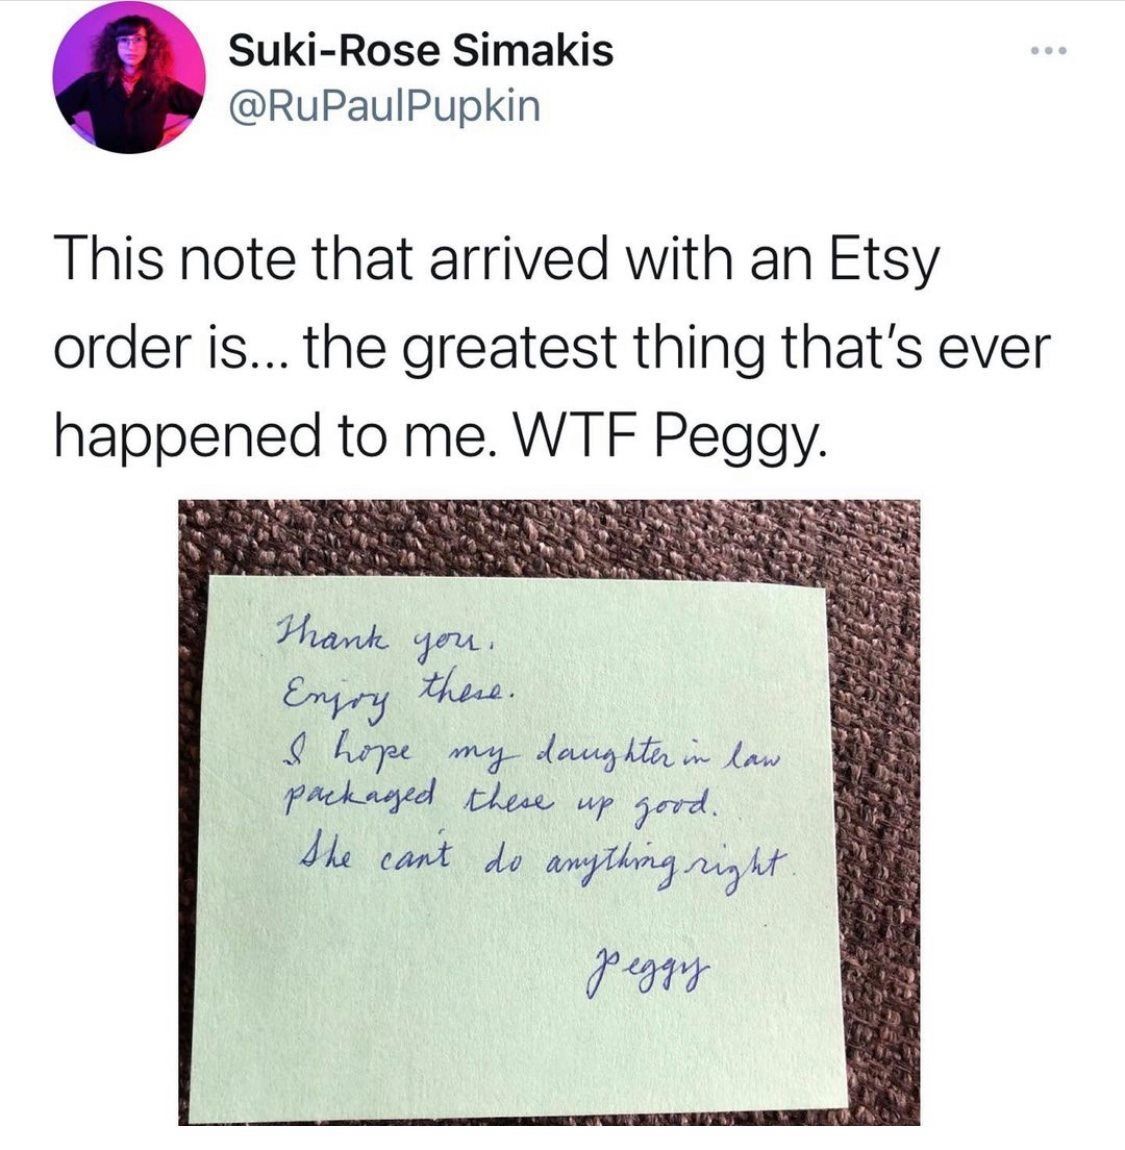 Suki-Rose Simakis
@RuPaulPupkin
This note that arrived with an Etsy
order is... the greatest thing that's ever
happened to me. WTF Peggy.
Thank you.
Enjoy these.
I hope my daughter in law
packaged these up good.
She can't do anything right.
Peggy